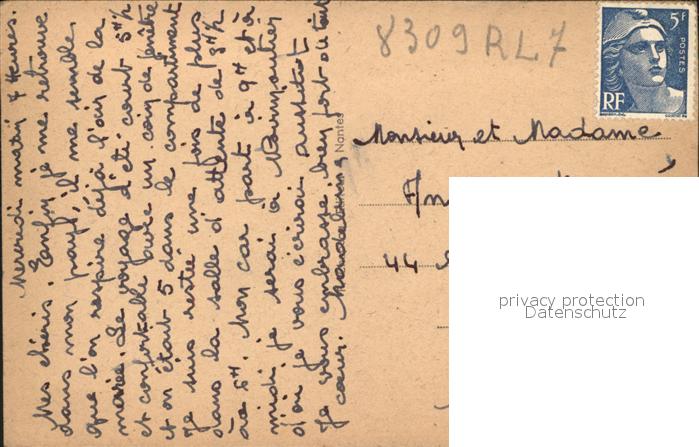 Mercredi matin 7 Heures.
Mes chéris. Enfin je me retrouve
dans mon pays, il me semble
que l'on respire déjà l'air de la
marée. Le voyage d'été court 5H ½
et confortable avec un coin de fenêtre
et on était 5 dans le compartiment
Je suis restée une fois de plus
dans la salle d'attente de 3H ½
à 6H. Mon car part à 9H et à
midi je serai à Noirmoutier
d'où je vous écrirai aussitôt
Je vous embrasse bien fort de tout
cœur. Madeleine
Nantes
8309RL7
5F
POSTES
RF
Monsieur et Madame
44
privacy protection
Datenschutz